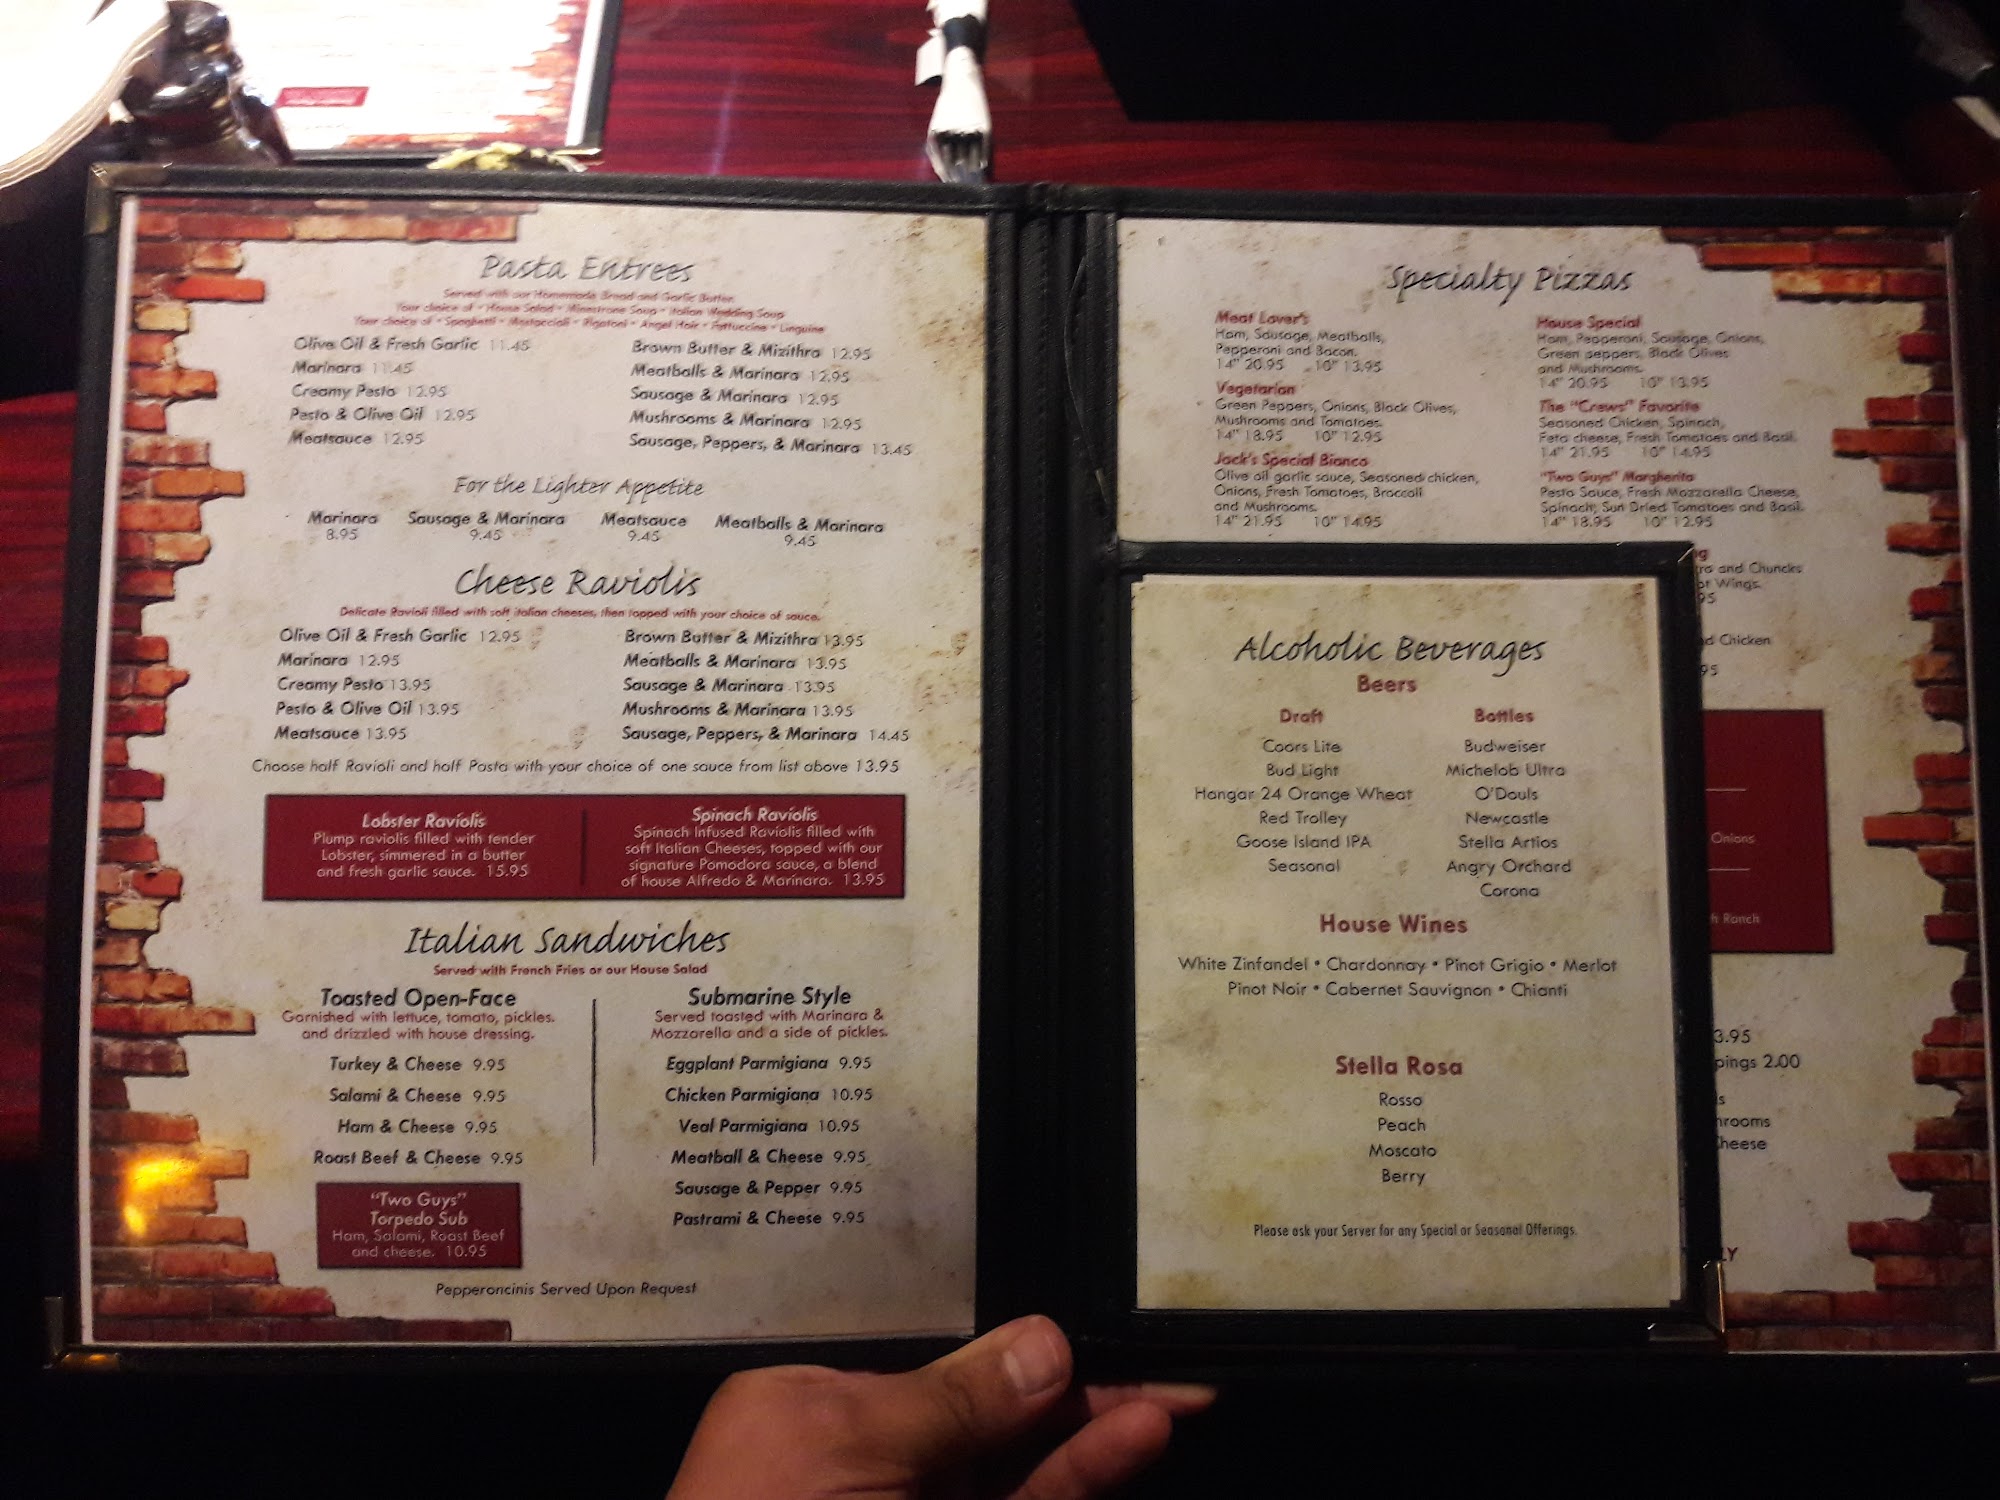 Pasta Entrees
Served with our Homemade Bread and Garlic Butter.
Your choice of • House Salad • Minestrone Soup • Italian Wedding Soup
Your choice of • Spaghetti • Mostaccioli • Rigatoni • Angel Hair • Fettuccine • Linguine
Olive Oil & Fresh Garlic 11.45
Marinara 11.45
Creamy Pesto 12.95
Pesto & Olive Oil 12.95
Meatsauce 12.95
Brown Butter & Mizithra 12.95
Meatballs & Marinara 12.95
Sausage & Marinara 12.95
Mushrooms & Marinara 12.95
Sausage, Peppers, & Marinara 13.45
For the Lighter Appetite
Marinara 8.95
Sausage & Marinara 9.45
Meatsauce 9.45
Meatballs & Marinara 9.45
Cheese Raviolis
Delicate Ravioli filled with soft italian cheeses, then topped with your choice of sauce.
Olive Oil & Fresh Garlic 12.95
Marinara 12.95
Creamy Pesto 13.95
Pesto & Olive Oil 13.95
Meatsauce 13.95
Brown Butter & Mizithra 13.95
Meatballs & Marinara 13.95
Sausage & Marinara 13.95
Mushrooms & Marinara 13.95
Sausage, Peppers, & Marinara 14.45
Choose half Ravioli and half Pasta with your choice of one sauce from list above 13.95
Lobster Raviolis
Plump raviolis filled with tender
Lobster, simmered in a butter
and fresh garlic sauce. 15.95
Spinach Raviolis
Spinach Infused Raviolis filled with
soft Italian Cheeses, topped with our
signature Pomodora sauce, a blend
of house Alfredo & Marinara. 13.95
Italian Sandwiches
Served with French Fries or our House Salad
Toasted Open-Face
Garnished with lettuce, tomato, pickles.
and drizzled with house dressing.
Turkey & Cheese 9.95
Salami & Cheese 9.95
Ham & Cheese 9.95
Roast Beef & Cheese 9.95
"Two Guys"
Torpedo Sub
Ham, Salami, Roast Beef
and cheese. 10.95
Submarine Style
Served toasted with Marinara &
Mozzarella and a side of pickles.
Eggplant Parmigiana 9.95
Chicken Parmigiana 10.95
Veal Parmigiana 10.95
Meatball & Cheese 9.95
Sausage & Pepper 9.95
Pastrami & Cheese 9.95
Pepperoncinis Served Upon Request
Specialty Pizzas
Meat Lover's
Ham, Sausage, Meatballs,
Pepperoni and Bacon.
14" 20.95 10" 13.95
Vegetarian
Green Peppers, Onions, Black Olives,
Mushrooms and Tomatoes.
14" 18.95 10" 12.95
Jack's Special Bianco
Olive oil garlic sauce, Seasoned chicken,
Onions, Fresh Tomatoes, Broccoli
and Mushrooms.
14" 21.95 10" 14.95
House Special
Ham, Pepperoni, Sausage, Onions,
Green peppers, Black Olives
and Mushrooms.
14" 20.95 10" 13.95
The "Crews" Favorite
Seasoned Chicken, Spinach,
Feta cheese, Fresh Tomatoes and Basil.
14" 21.95 10" 14.95
"Two Guys" Margherita
Pesto Sauce, Fresh Mozzarella Cheese,
Spinach, Sun Dried Tomatoes and Basil.
14" 18.95 10" 12.95
and Chuncks
Wings.
95
Chicken
95
Onions
Ranch
3.95
pings 2.00
s
hrooms
Cheese
LY
Alcoholic Beverages
Beers
Draft
Coors Lite
Bud Light
Hangar 24 Orange Wheat
Red Trolley
Goose Island IPA
Seasonal
Bottles
Budweiser
Michelob Ultra
O'Douls
Newcastle
Stella Artios
Angry Orchard
Corona
House Wines
White Zinfandel • Chardonnay • Pinot Grigio • Merlot
Pinot Noir • Cabernet Sauvignon • Chianti
Stella Rosa
Rosso
Peach
Moscato
Berry
Please ask your Server for any Special or Seasonal Offerings.